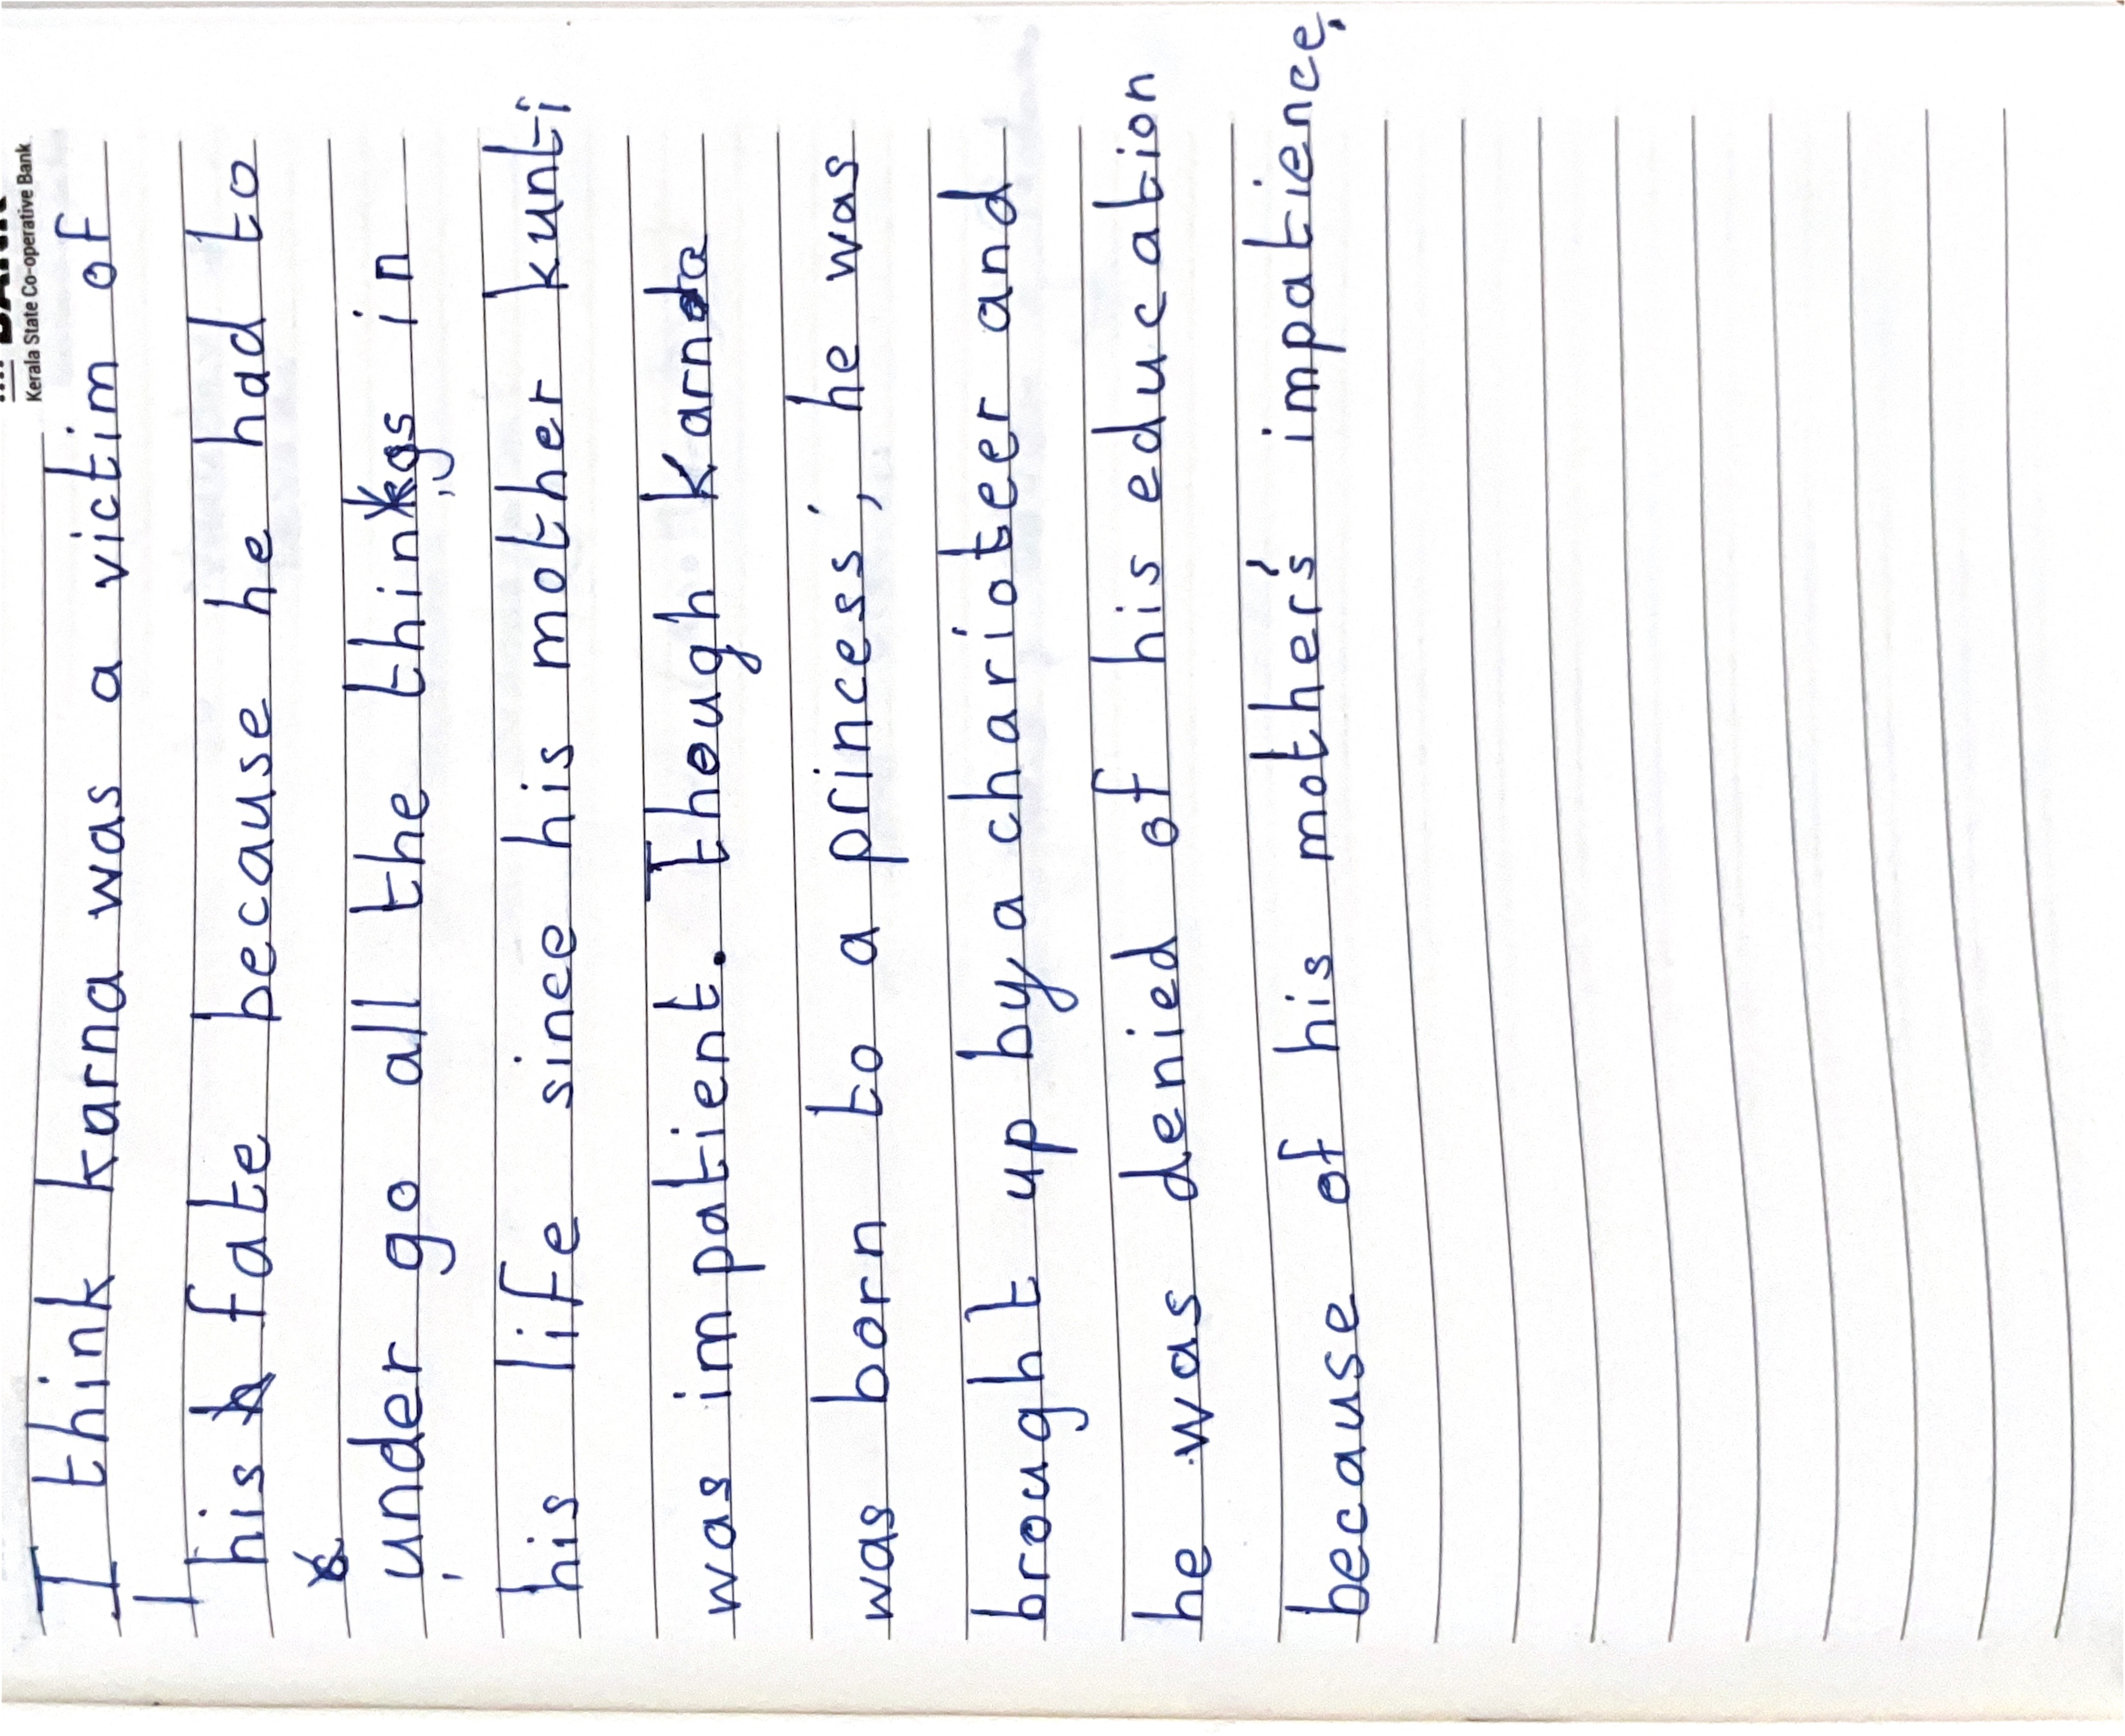 Kerala State Co-operative Bank
I think karna was a victim of
his fate because he had to
under go all the things in
his life since his mother kunti
was impatient. Though Karna
was born to a princess, he was
brought up by a charioteer and
he was denied of his education
because of his mother's impatience.